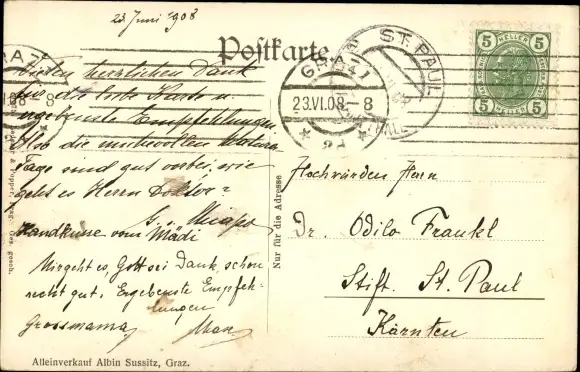 23 Juni 1908
Postkarte
GRAZ 1
23.VI.08-8
* 2d *
ST. PAUL
VI.08-8
5 HELLER 5
5 HELLER 5
Vielen herzlichen Dank
für die liebe Karte u.
ergebenste Empfehlungen
Also die mühevollen Matura
Tage sind gut vorbei, wie
geht es Herrn Doktor?
Handküsse vom Mädi
Mir geht es, Gott sei Dank, schon
recht gut. Ergebenste Empfeh-
lungen
Grossmama
Nur für die Adresse
Hochwürden Herrn
Dr. Odilo Frankl
Stift. St. Paul
Kärnten
Alleinverkauf Albin Sussitz, Graz.